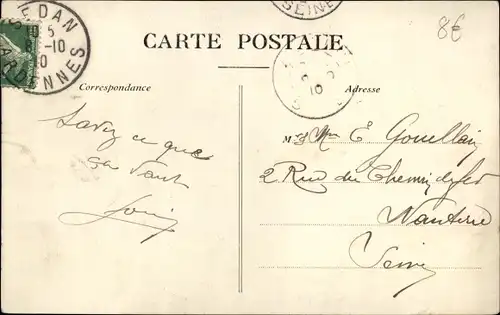 SEDAN
10 5
-10
10
ARDENNES
SEINE
8€
CARTE POSTALE
10
Correspondance
Adresse
Savez ce que
ça vaut
M
Mme E Gouellain
2 Rue du Chemin de fer
Nanterre
Seine